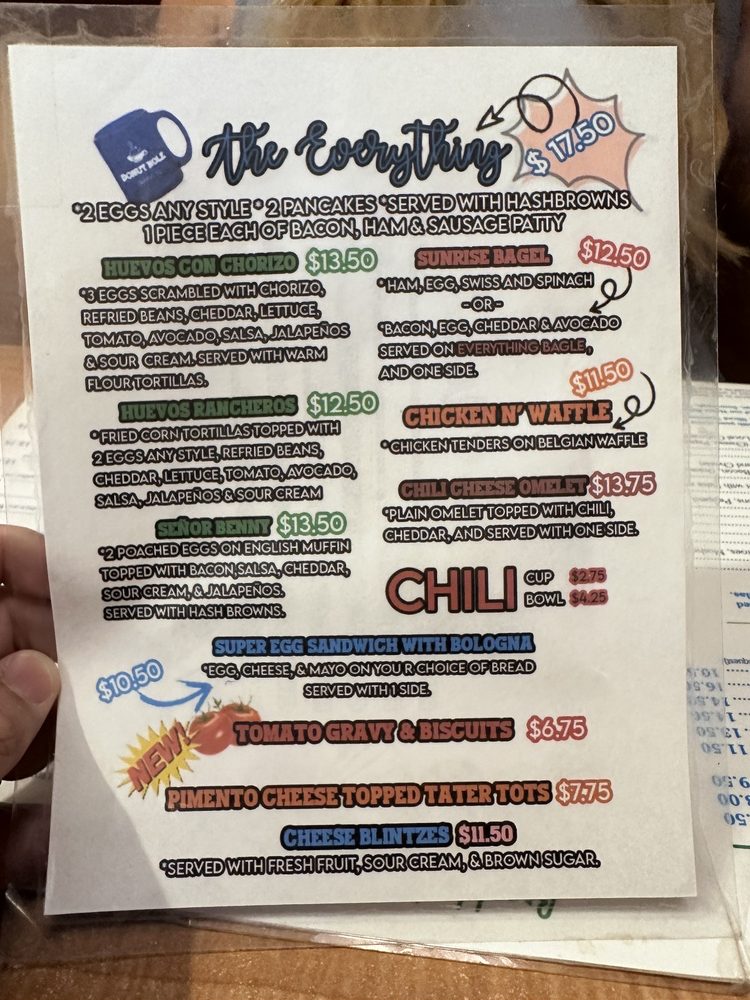 DONUT HOLE
the Everything
$ 17.50
*2 EGGS ANY STYLE * 2 PANCAKES *SERVED WITH HASHBROWNS
1 PIECE EACH OF BACON, HAM & SAUSAGE PATTY
HUEVOS CON CHORIZO $13.50
*3 EGGS SCRAMBLED WITH CHORIZO,
REFRIED BEANS, CHEDDAR, LETTUCE,
TOMATO, AVOCADO, SALSA, JALAPEÑOS
& SOUR CREAM. SERVED WITH WARM
FLOUR TORTILLAS.
HUEVOS RANCHEROS $12.50
*FRIED CORN TORTILLAS TOPPED WITH
2 EGGS ANY STYLE, REFRIED BEANS,
CHEDDAR, LETTUCE, TOMATO, AVOCADO,
SALSA, JALAPEÑOS & SOUR CREAM
SEÑOR BENNY $13.50
*2 POACHED EGGS ON ENGLISH MUFFIN
TOPPED WITH BACON, SALSA, CHEDDAR,
SOUR CREAM, & JALAPEÑOS.
SERVED WITH HASH BROWNS.
SUNRISE BAGEL $12.50
*HAM, EGG, SWISS AND SPINACH
-OR-
*BACON, EGG, CHEDDAR & AVOCADO
SERVED ON EVERYTHING BAGLE,
AND ONE SIDE.
$11.50
CHICKEN N' WAFFLE
*CHICKEN TENDERS ON BELGIAN WAFFLE
CHILI CHEESE OMELET $13.75
*PLAIN OMELET TOPPED WITH CHILI,
CHEDDAR, AND SERVED WITH ONE SIDE.
CHILI
CUP $2.75
BOWL $4.25
SUPER EGG SANDWICH WITH BOLOGNA
*EGG, CHEESE, & MAYO ON YOU R CHOICE OF BREAD
SERVED WITH 1 SIDE.
$10.50
NEW!
TOMATO GRAVY & BISCUITS $6.75
PIMENTO CHEESE TOPPED TATER TOTS $7.75
CHEESE BLINTZES $11.50
*SERVED WITH FRESH FRUIT, SOUR CREAM, & BROWN SUGAR.